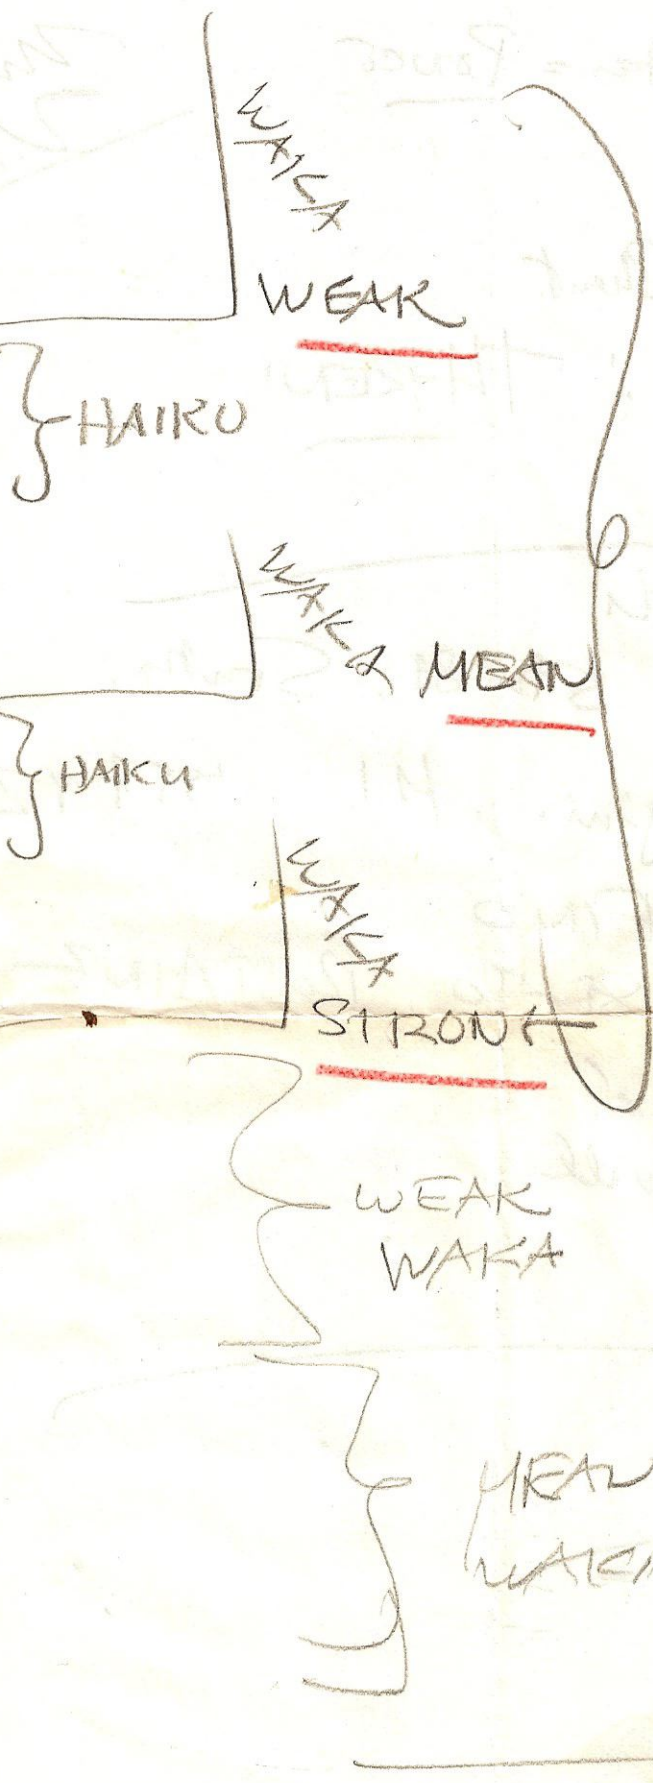 WAKA
WEAK
HAIKU
WAKA
MEAN
HAIKU
WAKA
STRONG
WEAK
WAKA
MEAN
WAKA